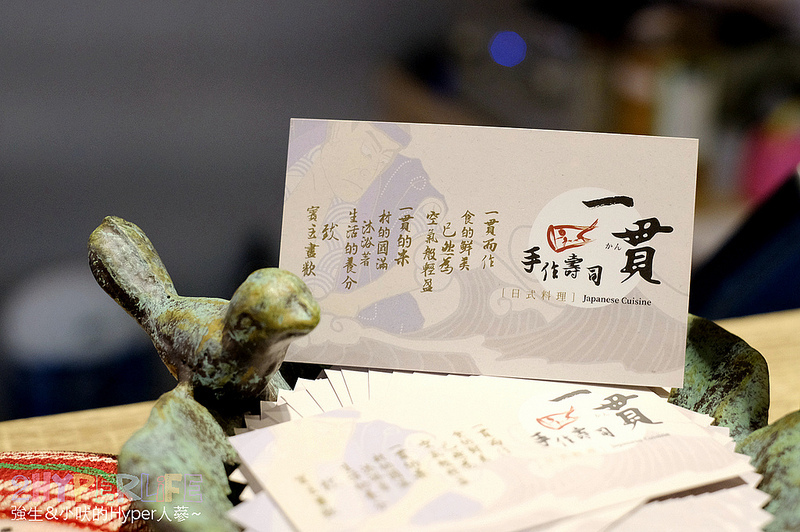 一貫
かん
手作壽司
[日式料理] Japanese Cuisine
一貫而作
食的鮮美
已此為
空氣般輕盈
一貫的米
材的圓滿
沐浴著
生活的養分
致
賓主盡歡
一貫
手作壽司
HYPERLIFE
強生&小吠的Hyper人蔘~